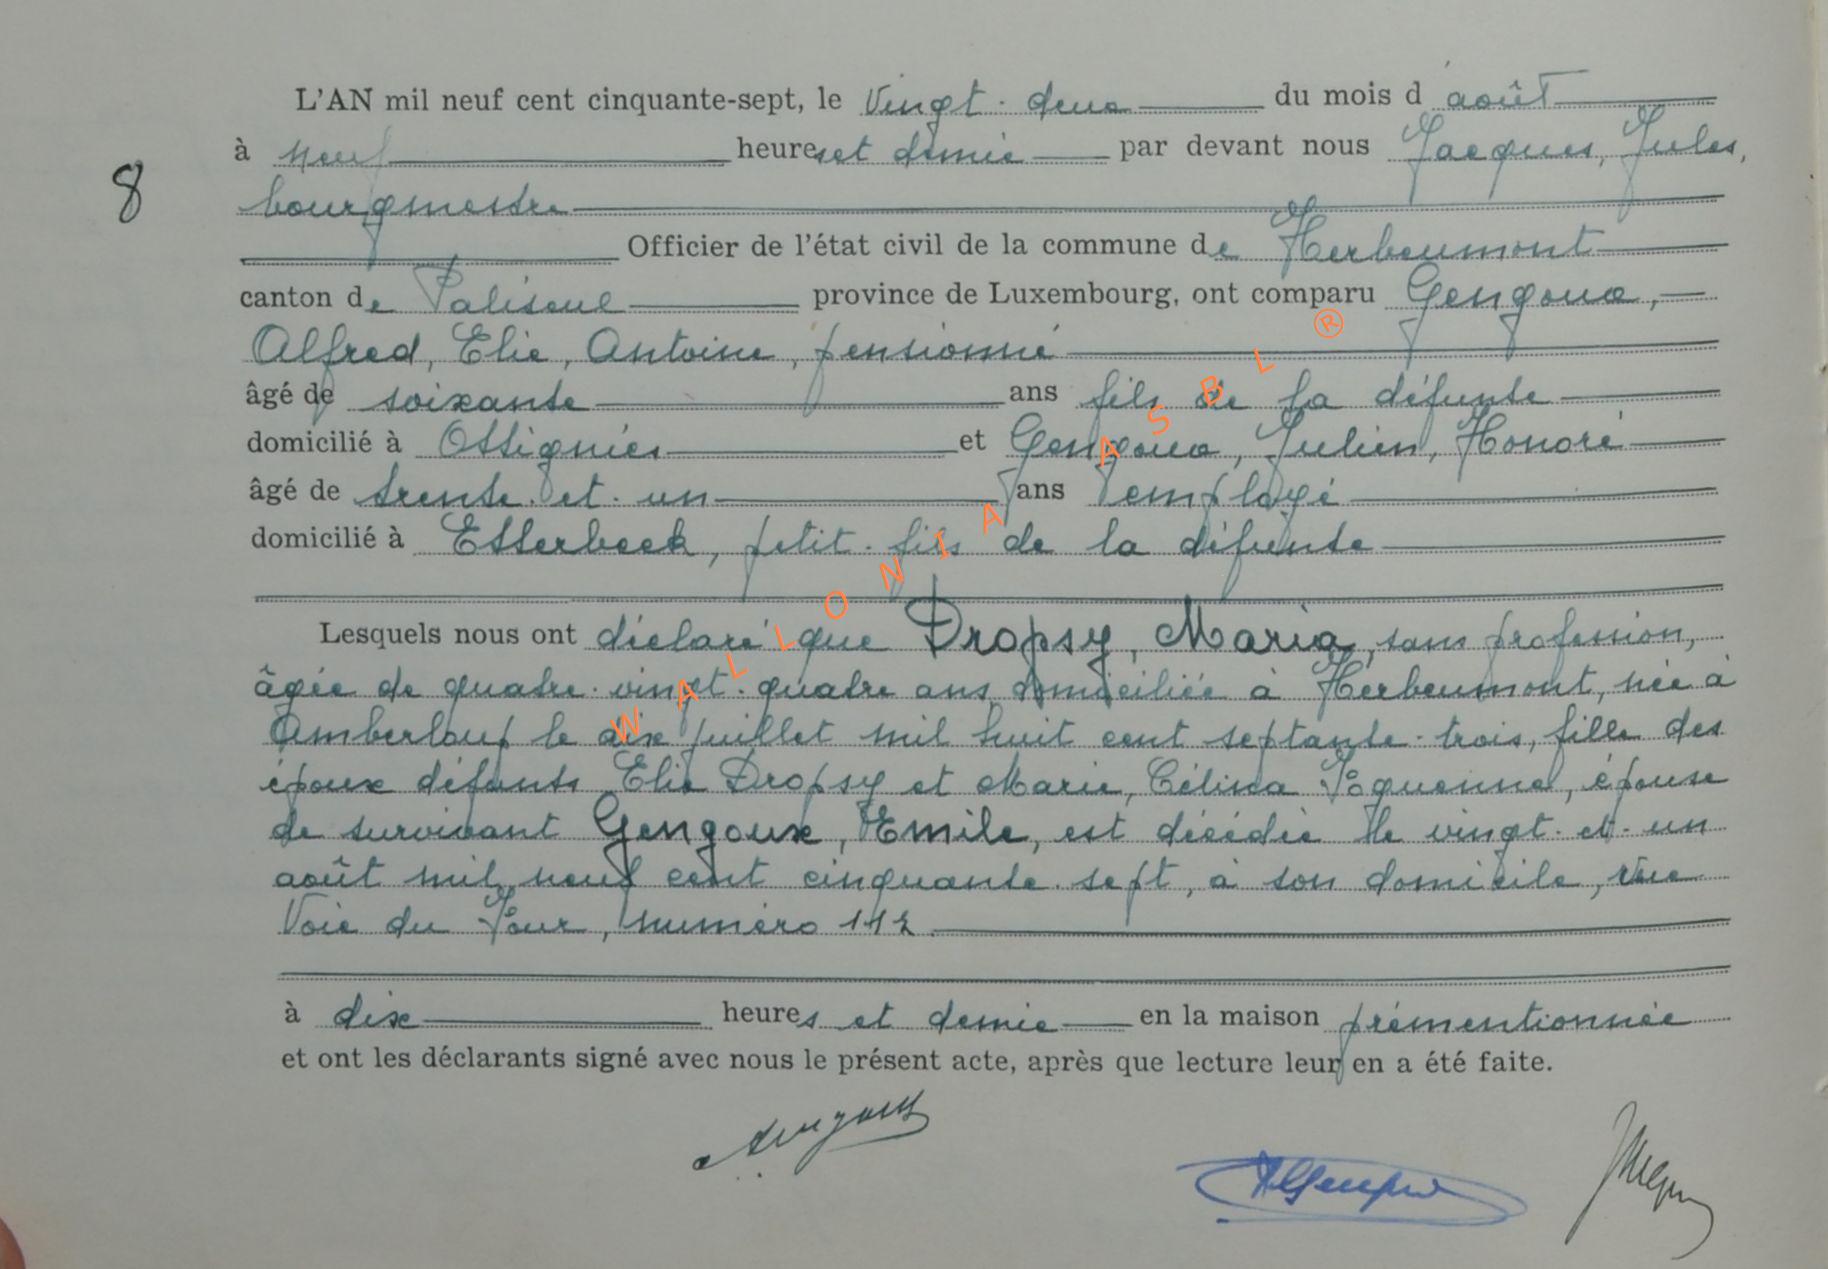 L'AN mil neuf cent cinquante-sept, le vingt-deux du mois d'août
à neuf heures et demie par devant nous Jacques, Jules,
8
bourgmestre
Officier de l'état civil de la commune de Herbeumont
canton de Paliseul province de Luxembourg, ont comparu Gengoux,
Alfred, Elie, Antoine, pensionné
âgé de soixante ans fils de la défunte
domicilié à Ottignies et Gengoux, Julien, Honoré
âgé de trente-et-un ans employé
domicilié à Etterbeek, petit-fils de la défunte
Lesquels nous ont déclaré que Dropsy, Maria, sans profession,
âgée de quatre-vingt-quatre ans, domiciliée à Herbeumont, née à
Amberloup le dix juillet mil huit cent septante-trois, fille des
époux défunts Elie Dropsy et Marie, Célina, épouse
de survivant Gengoux, Emile, est décédée le vingt-et-un
août mil neuf cent cinquante-sept, à son domicile, rue
Voie du Four, numéro 112
à dix heures et demie en la maison prémentionnée
et ont les déclarants signé avec nous le présent acte, après que lecture leur en a été faite.
WALLONIA ASBL ®